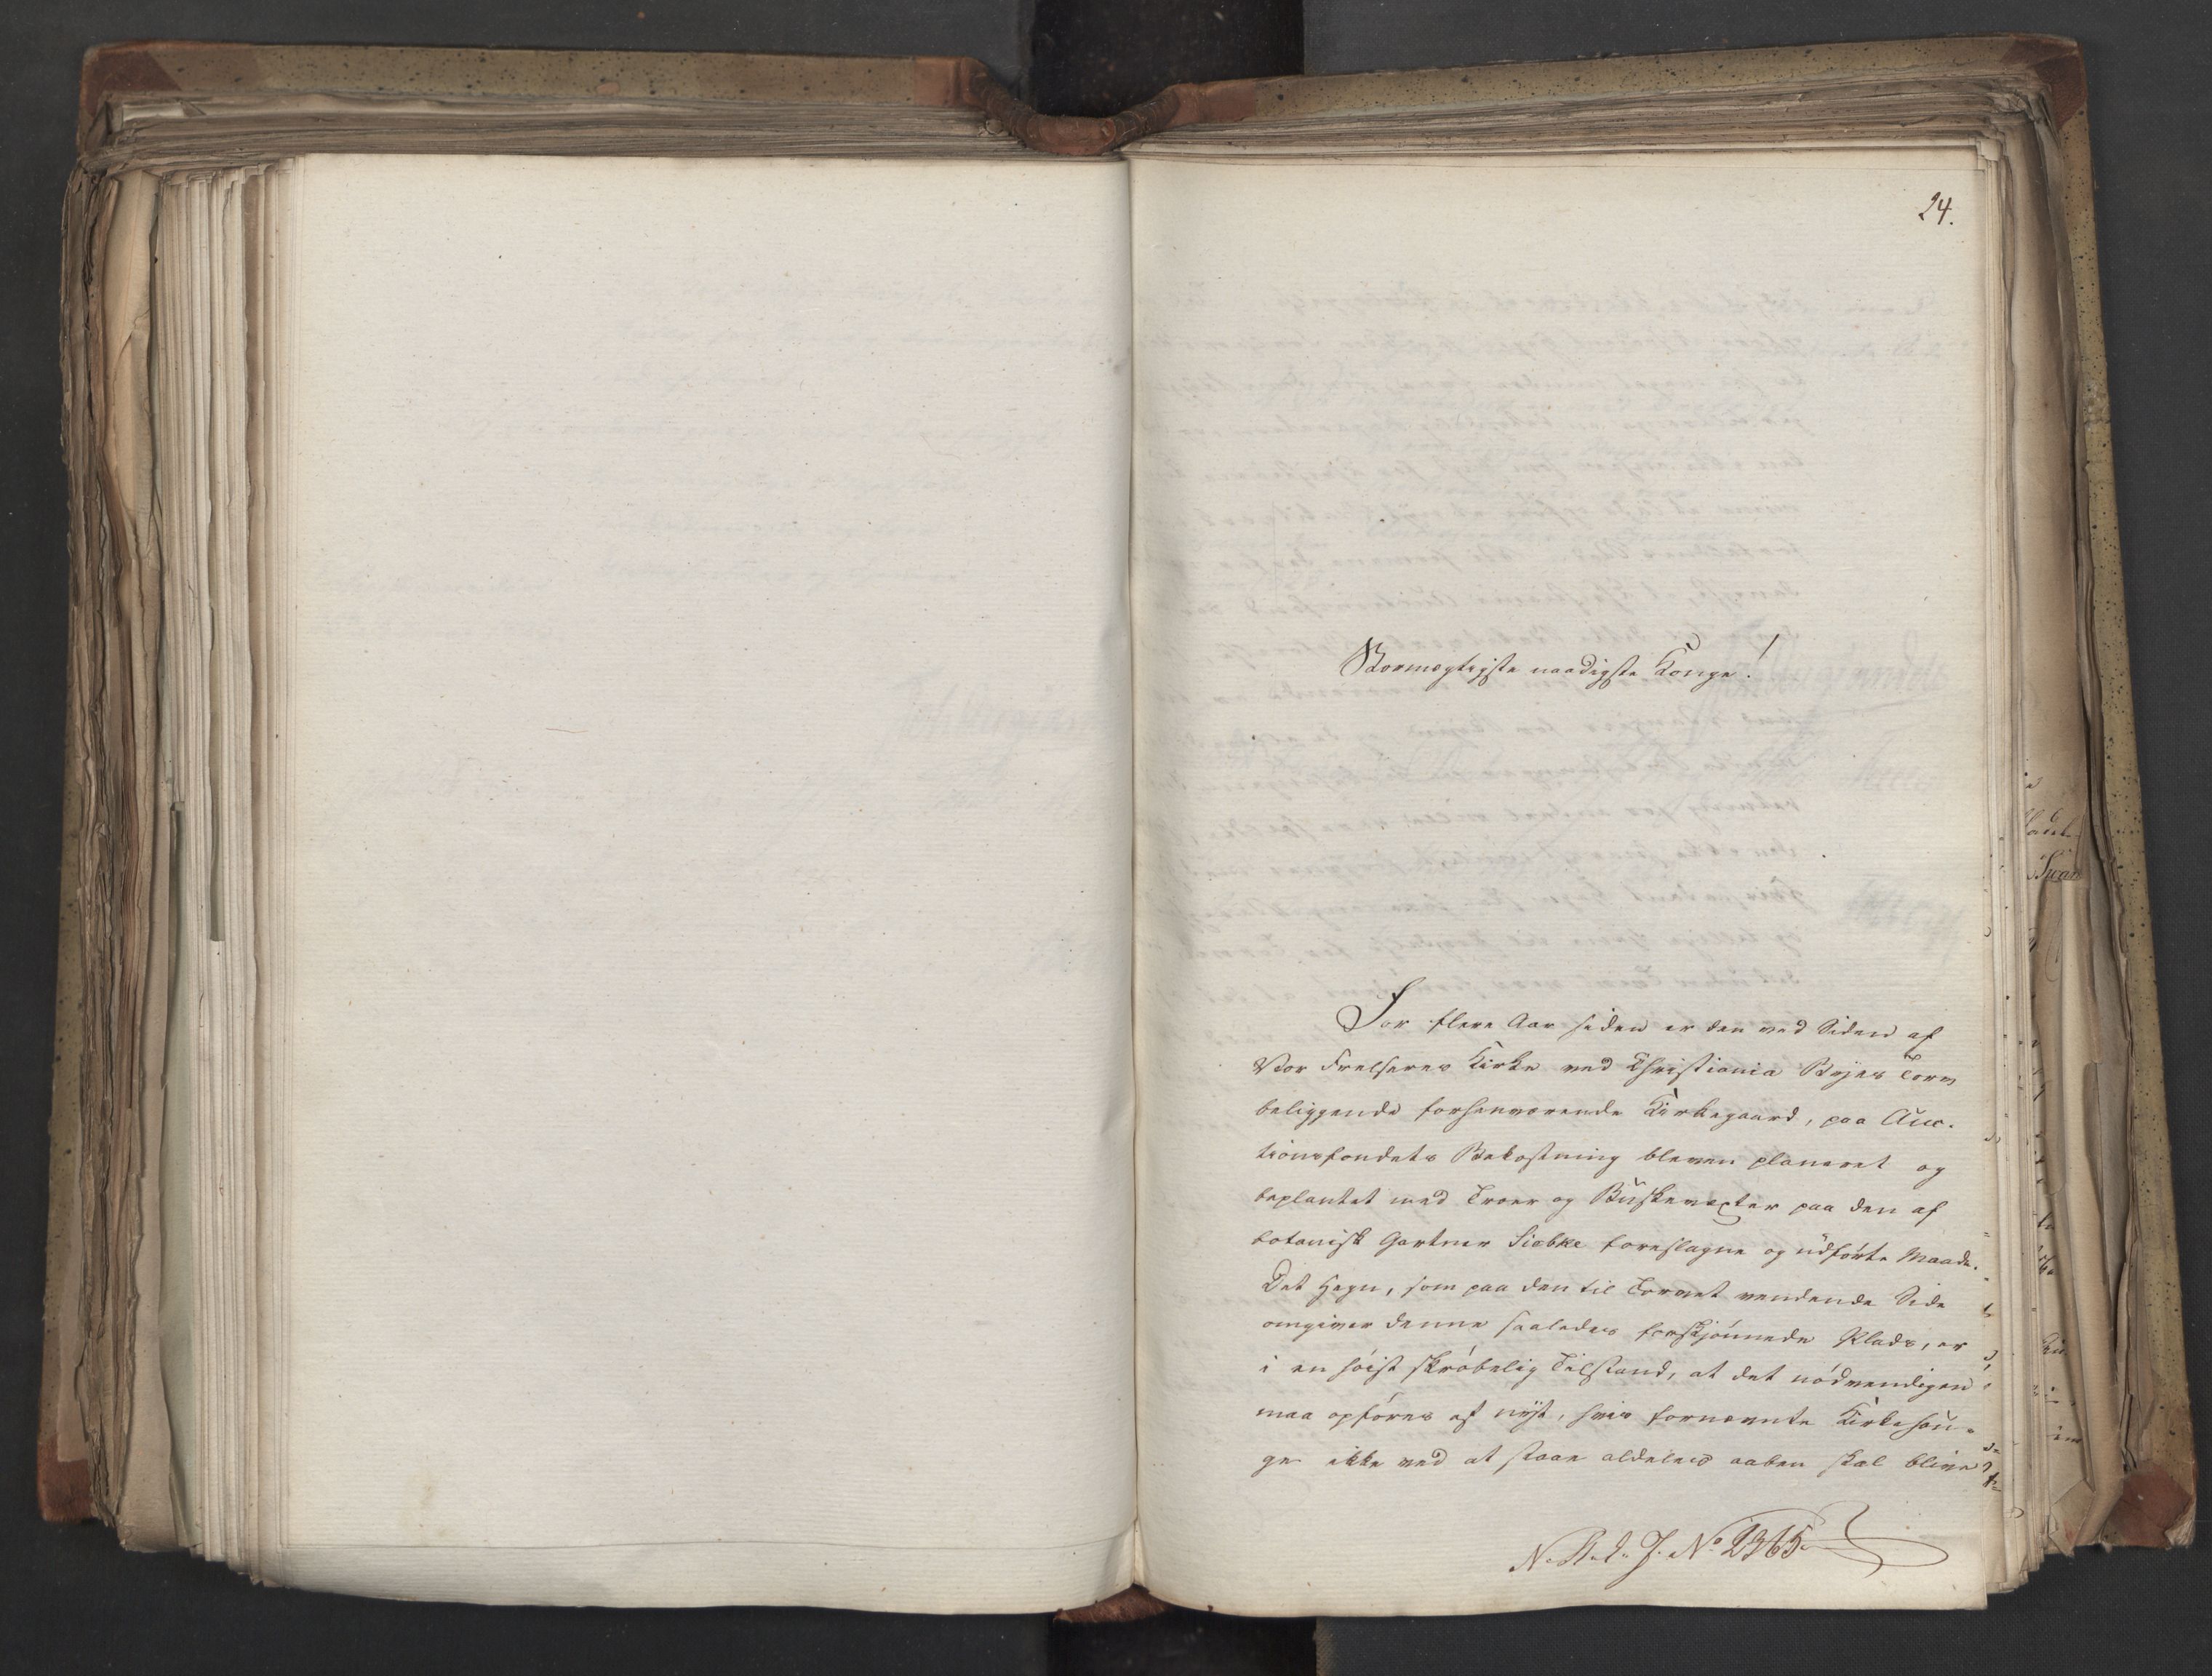 24.
Stormægtigste naadigste Konge!
For flere Aar siden er den ved Siden af
Vor Frelseres Kirke ved Christiania Byes Torv
beliggende forhenværende Kirkegaard, paa Auc-
tionsfondets Bekostning bleven planeret og
beplantet med Træer og Buskevexter paa den af
botanisk Gartner Siebke foreslagne og udførte Maade.
Det Hegn, som paa den til Torvet vendende Side
omgiver denne saaledes forskjønnede Plads, er
i en høist skrøbelig Tilstand, at det nødvendigen
maa opføres af nyt, hvis fornævnte Kirkehau-
ge ikke ved at staae aldeles aaben skal blive
N. R. L. J. No 2365